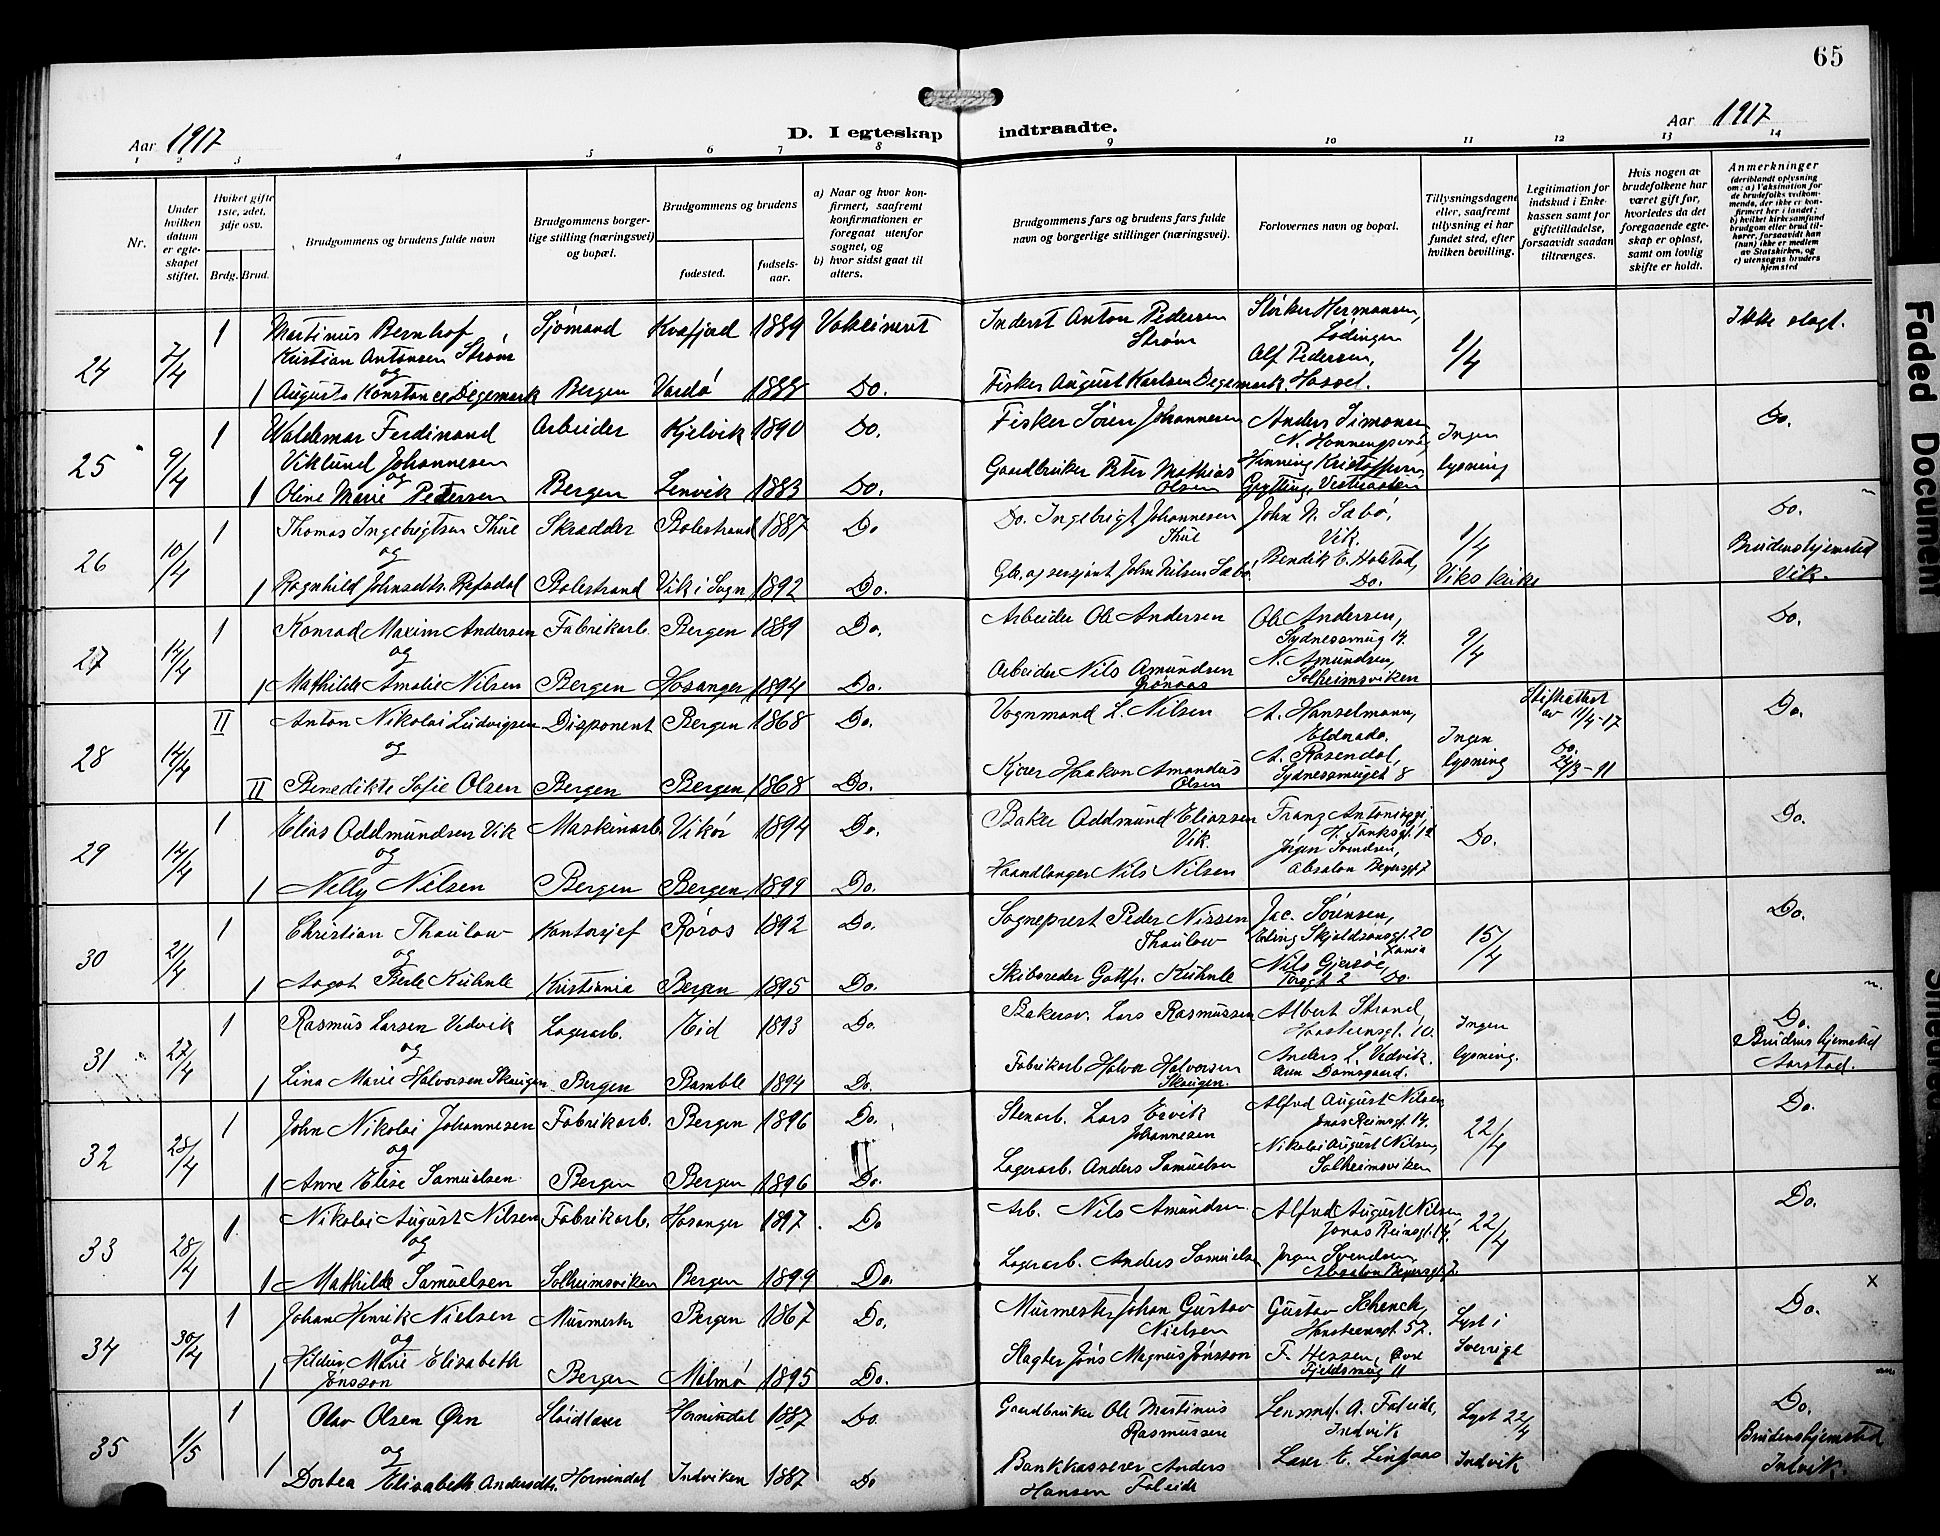 65
Aar 1917
D. I egteskap indtraadte.
Aar 1917
1 2 3 4 5 6 7 8 9 10 11 12 13 14
Nr.
Under hvilken datum er egteskapet stiftet.
Hviket gifte 1ste, 2det, 3dje osv.
Brdg. Brud.
Brudgommens og brudens fulde navn
Brudgommens borgerlige stilling (næringsvei) og bopæl.
Brudgommens og brudens
fødested.
fødselsaar.
a) Naar og hvor konfirmert, saafremt konfirmationen er foregaat utenfor sognet, og
b) hvor sidst gaat til alters.
Brudgommens fars og brudens fars fulde navn og borgerlige stillinger (næringsvei).
Forlovernes navn og bopæl.
Tillysningsdagene eller, saafremt tillysning ei har fundet sted, efter hvilken bevilling.
Legitimation for indskud i Enkekassen samt for giftetilladelse, forsaavidt saadan tiltrænges.
Hvis nogen av brudefolkene har været gift før, hvorledes da det foregaaende egteskap er opløst, samt om lovlig skifte er holdt.
Anmerkninger (deriblandt oplysning om: a) Vaksination for de brudefolks vedkommende, der ikke er konfirmert her i landet; b) hvilket kirkesamfund brudgom eller brud tilhører, forsaavidt han (hun) ikke er medlem av Statskirken, og c) utensogns bruders hjemsted
24 7/4 1 Martinus Bernhof Kristian Antonsen Strøm Sjømand Kvæfjord 1889 Vaksineret Inderst Anton Pedersen Strøm Stirker Hermansen, Lødingen 1/4 Ikke slegt.
og
1 Augusta Konstance Degemark Bergen Vardø 1888 Do. Fisker August Karlsen Degemark Alf Pedersen, Hassel.
25 9/4 1 Waldemar Ferdinand Viklund Johannesen Arbeider Kjelvik 1890 Do. Fisker Sören Johannesen Anders Simonsen N. Honningsvåg Ingen lysning Do.
og
1 Oline Marie Pedersen Bergen Lenvik 1883 Do. Gaardbruker Peter Mathias Olsen Henning Kristoffersen, Grytting, Vestraalen
26 10/4 1 Thomas Ingebrigtsen Thue Skrædder Balestrand 1887 Do Do. Ingebrigt Johannesen Thue John N. Sabø, Vik. 1/4 Do.
og
1 Ragnhild Johnsdtr. Refsdal Balestrand Vik i Sogn 1892 Do. Gbr. og sersjant John Nilsen Sabø Bendik E. Holstad, Do. Viks kirke Brudens hjemsted Vik.
27 14/4 1 Konrad Maxim Andersen Fabrikarb. Bergen 1889 Do. Arbeider Ole Andersen Ole Andersen, Sydnessmug 14. 9/4 Do.
og
1 Mathilde Amalie Nilsen Bergen Hosanger 1894 Do. Arbeider Nils Amundsen Grønaas N. Amundsen, Solheimsviken
28 14/4 II Anton Nikolai Ludvigsen Disponent Bergen 1868 Do. Vognmand L. Nilsen A. Hanselmann, Eldorado. Ingen lysning Skifteattest av 11/4-17 Do.
og
II Benedikte Sofie Olsen Bergen Bergen 1868 Do. Kjører Haakon Amandus Olsen A. Rosendal, Sydnessmuget 8 Do. 24/3-11
29 14/4 1 Elias Oddmundsen Vik Maskinarb. Vikør 1894 Do. Baker Oddmund Eliassen Vik. Do. Do.
og
1 Nelly Nilsen Bergen Bergen 1899 Do. Haandlanger Nils Nilsen Jørgen Svendsen, Absalon Beyersgt 7
30 21/4 1 Christian Thaulow Kontorsjef Røros 1892 Do. Sogneprest Peder Nissen Thaulow Jac. Sørensen, Erling Skjalgsønsgt. 20 Xania 15/4 Do.
og
1 Aagot Berle Kuhnle Kristiania Bergen 1895 Do. Skibsreder Gottfr. Kuhnle Nils Gjersøe, Torvgt 2 Do.
31 27/4 1 Rasmus Larsen Vedvik Lagerarb. Eid 1893 Do. Bakersv. Lars Rasmussen Albert Strand, Haasteinsgt. 10. Ingen lysning. Do.
og
1 Lina Marie Halvorsen Skaugen Bergen Bamble 1894 Do. Fabrikarb. Halvor Halvorsen Skaugen. Anders L. Vedvik. Damsgaard. Brudens hjemsted Aarstad.
32 28/4 1 John Nikolai Johannesen Fabrikarb. Bergen 1896 Do. Stenarb. Lars Ervik Johannesen Alfred August Nilsen, Jonas Reinsgt. 14. 22/4 Do.
og
1 Anne Elise Samuelsen Bergen Bergen 1896 Do. Lagerarb. Anders Samuelsen Nikolai August Nilsen, Solheimsviken
33 28/4 1 Nikolai August Nilsen Fabrikarb. Hosanger 1897. Do Arb. Nils Amundsen. Alfred August Nilsen, Jonas Reinsgt. 14. 22/4 Do.
og
1 Mathilde Samuelsen Solheimsviken Bergen 1899 Do. Lagerarb. Anders Samuelsen Jørgen Svendsen, Absalon Beyersgt 7.
34 30/4 1 Johan Henrik Nielsen Murmester Bergen 1867 Do. Murmester Johan Gustav Nielsen Gustav Schenck, Hansteensgt. 57. Lyst i Sverige Do. x
og
1 Hildur Marie Elisabeth Jonsson Bergen Malmø 1895 Do. Slagter Jöns Magnus Jönsson F. Hessen, Øvre Fjeldsmug 11
35 1/5 1 Olav Olsen Øen Sløidlærer Hornindal 1887 Do. Gaardbruker Ole Martinus Rasmussen Lensmd. A. Faleide, Indvik Lyst 22/4 Indvik Do.
og
1 Dortea Elisabeth Andersdtr. Hornindal Indviken 1887 Do Bankkasserer Anders Hansen Faleide Lærer E. Lindaas Brudens hjemsted Indvik.
Faded Document